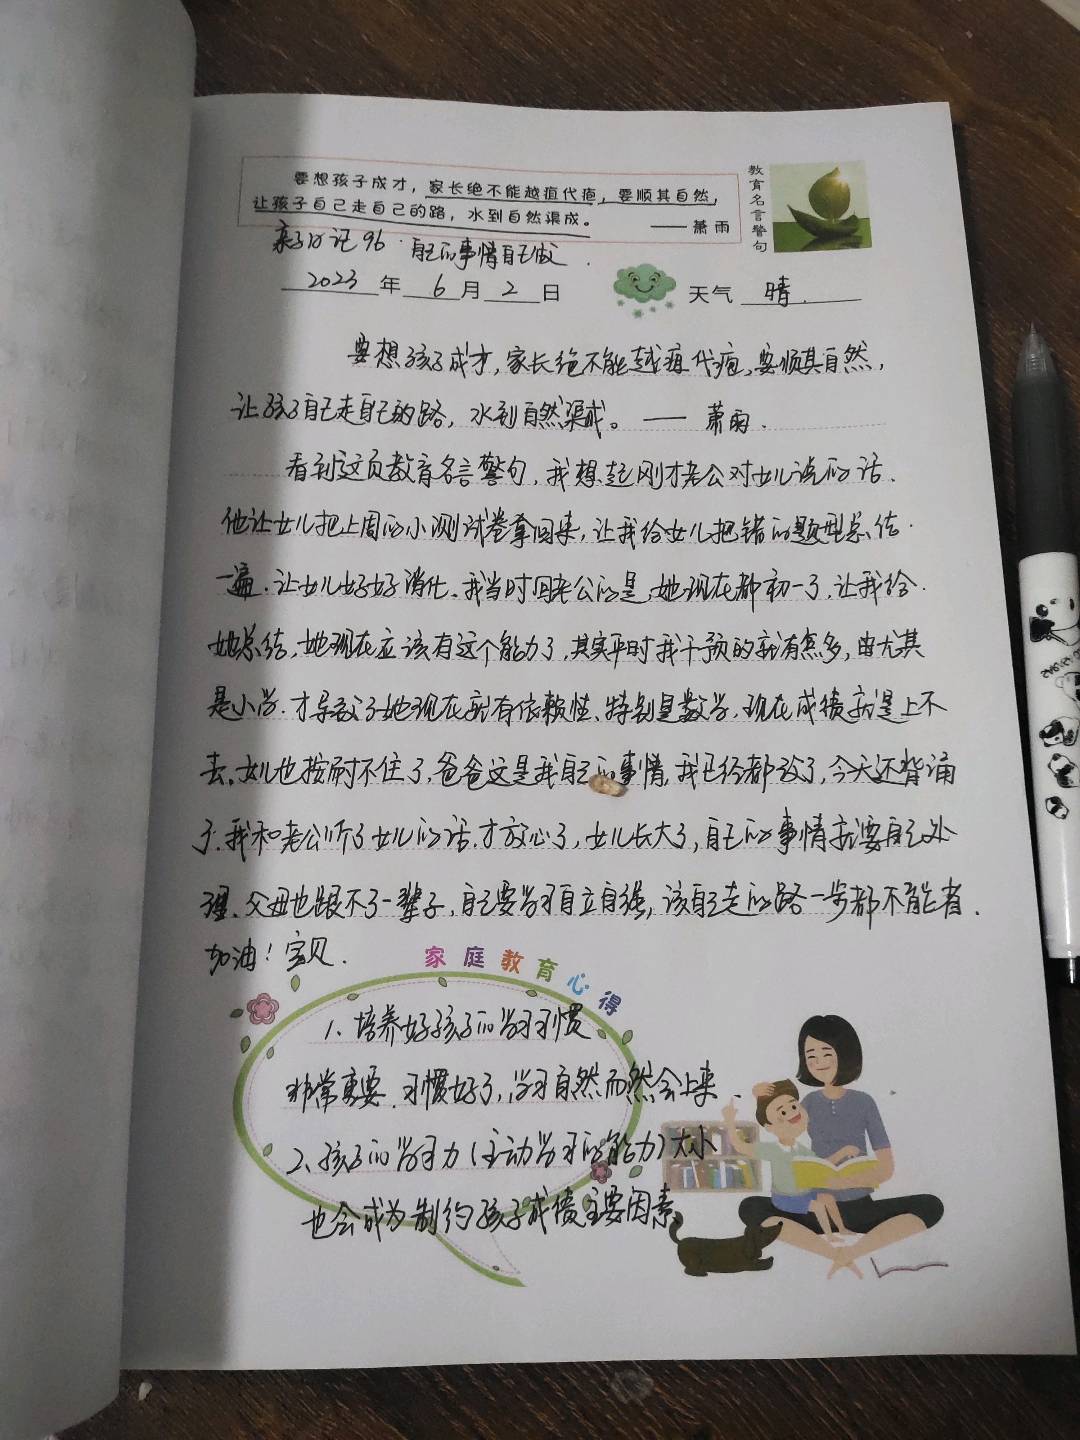 要想孩子成才，家长绝不能越疽代疱，要顺其自然，
让孩子自己走自己的路，水到自然渠成。
——萧雨
教育名言警句
亲子日记96·自己的事情自己做
2023年6月2日
天气 晴.
要想孩子成才，家长绝不能越疽代疱，要顺其自然，
让孩子自己走自己的路，水到自然渠成。——萧雨.
看到这页教育名言警句，我想起刚才老公对女儿说的话.
他让女儿把上周的小测试卷拿回来，让我给女儿把错的题型总结
一遍.让女儿好好消化.我当时回老公的是,她现在都初一了,让我给
她总结,她现在应该有这个能力了,其实平时我干预的就有点多,由尤其
是小学.才导致了她现在就有依赖性、特别是数学,现在成绩就是上不
去.女儿也按耐不住了,爸爸这是我自己的事情,我已经都改了,今天还背诵
了.我和老公听了女儿的话.才放心了,女儿长大了,自己的事情就要自己处
理.父母也跟不了一辈子,自己要学习自立自强,该自己走的路一步都不能省.
加油！宝贝.
家庭教育心得
1.培养好孩子的学习习惯
非常重要.习惯好了,学习自然而然会上来.
2、孩子的学习力(主动学习的能力)大小
也会成为制约孩子成绩主要因素.